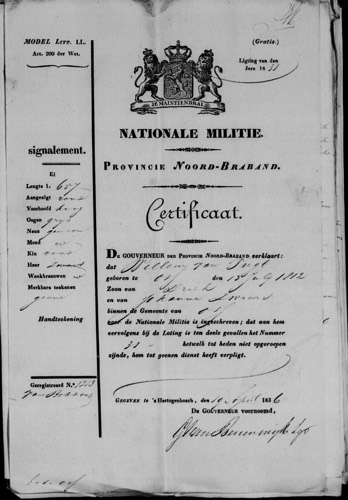 MODEL Litt. LL.
Art. 200 der Wet.
(Gratis.)
Ligting van den
Jare 1831
JE MAINTIENDRAI
NATIONALE MILITIE.
PROVINCIE NOORD-BRABAND.
Certificaat.
signalement.
El
Lengte 1. 687
Aangezigt rond
Voorhoofd hoog
Oogen grijs
Neus gewoon
Mond
Kin rond
Haar
Wenkbraauwen
Merkbare teekenen
geene
Handteekening
Geregistreerd N.º 1213
DE GOUVERNEUR DER PROVINCIE NOORD-BRABAND verklaart:
dat Willem van
geboren te 13 July 1812
Zoon van
en van Johanna
binnen de Gemeente van
voor de Nationale Militie is ingeschreven; dat aan hem
vervolgens bij de Loting is ten deele gevallen het Nummer
31 hetwelk tot heden niet opgeroepen
zijnde, hem tot geenen dienst heeft verpligt.
GEGEVEN te 's Hertogenbosch, den 10 April 1836
De GOUVERNEUR voornoemd,